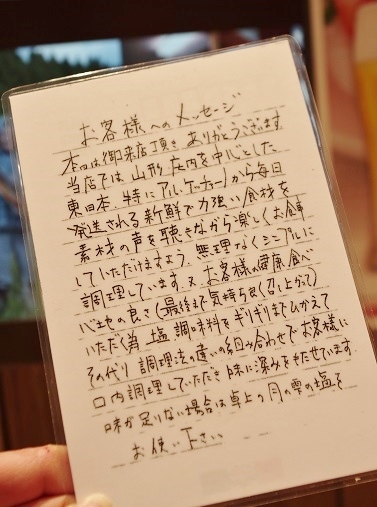 お客様へのメッセージ
本日は御来店頂き ありがとうございます
当店では 山形 庄内を中心とした
東日本 特にアル・ケッチャーノから毎日
発送される新鮮で力強い食材を
素材の声を聴きながら楽しくお食事
していただけますよう、無理なくシンプルに
調理しています。又 お客様の健康、食べ
バエの良さ(最後まで気持ち良く召し上がって)
いただく為 塩、調味料をギリギリまでひかえて
その代り 調理法の違いの組み合わせで お客様に
口内調理していただき 味に深みをもたせています
味が足りない場合は卓上の月の雫の塩を
お使い下さい